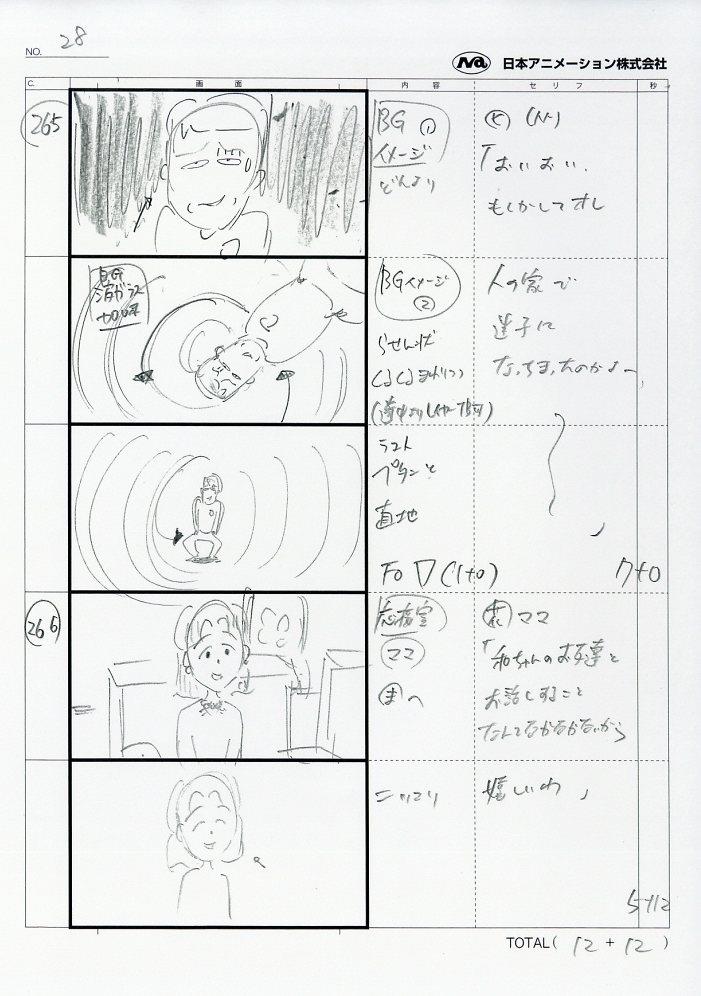 NO. 28
日本アニメーション株式会社
C. 画面 内容 セリフ 秒
265
BG ①
イメージ
どんより
(M)
「おいおい、
もしかしてオレ
BGイメージ
②
らせん状
人の家で
迷子に
なっちまったのかよー
ラスト
ペタンと
着地
」
FO ▽ (1+0)
7+0
266
応接室
ママ
ママ
「和ちゃんのお友達と
お話しすること
なんてなかなかないから
ニッコリ
嬉しいわ」
5+12
TOTAL( 12 + 12 )